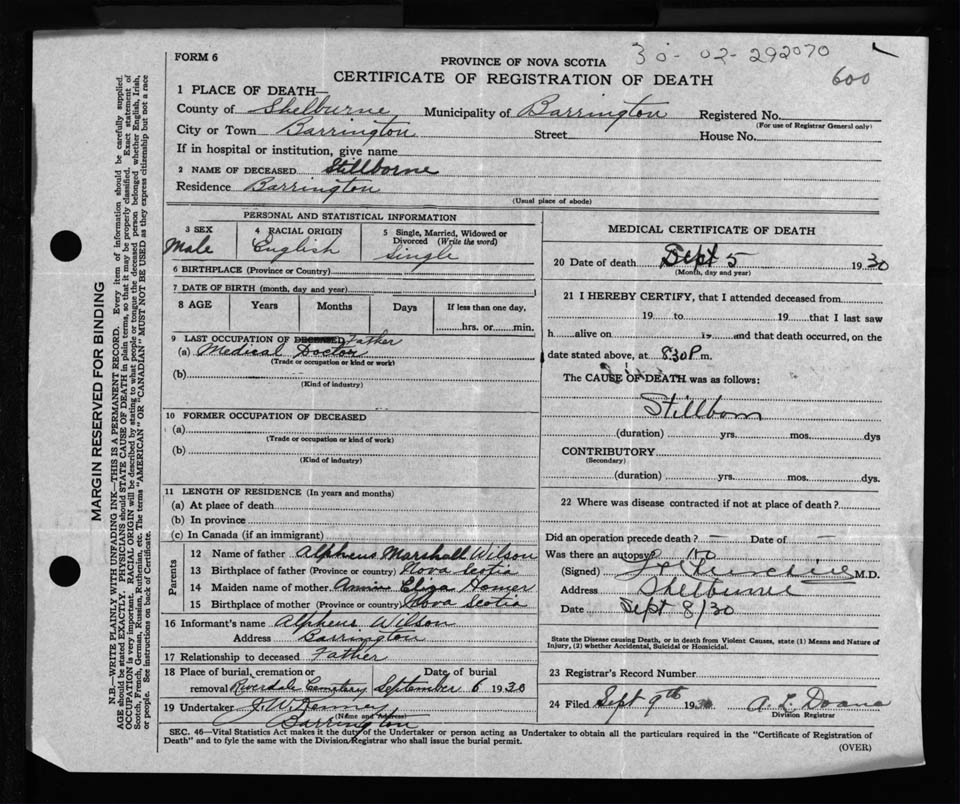 FORM 6
PROVINCE OF NOVA SCOTIA
30-02-292070
600
CERTIFICATE OF REGISTRATION OF DEATH
1 PLACE OF DEATH—
County of Shelburne Municipality of Barrington Registered No.
(For use of Registrar General only)
City or Town Barrington Street House No.
If in hospital or institution, give name
2 NAME OF DECEASED Stillborne
Residence Barrington
(Usual place of abode)
PERSONAL AND STATISTICAL INFORMATION
3 SEX 4 RACIAL ORIGIN 5 Single, Married, Widowed or Divorced (Write the word)
Male English Single
6 BIRTHPLACE (Province or Country)
7 DATE OF BIRTH (month, day and year)
8 AGE Years Months Days If less than one day,
hrs. or min.
9 LAST OCCUPATION OF DECEASED Father
(a) Medical Doctor
(Trade or occupation or kind or work)
(b)
(Kind of industry)
10 FORMER OCCUPATION OF DECEASED
(a)
(Trade or occupation or kind of work)
(b)
(Kind of industry)
11 LENGTH OF RESIDENCE (In years and months)
(a) At place of death
(b) In province
(c) In Canada (if an immigrant)
Parents
12 Name of father Alpheus Marshall Wilson
13 Birthplace of father (Province or country) Nova Scotia
14 Maiden name of mother Annie Eliza Homer
15 Birthplace of mother (Province or country) Nova Scotia
16 Informant's name Alpheus Wilson
Address Barrington
17 Relationship to deceased Father
18 Place of burial, cremation or removal Riverdale Cemetery Date of burial September 6 1930
19 Undertaker J. W. Kenney
(Name and Address)
Barrington
MEDICAL CERTIFICATE OF DEATH
20 Date of death Sept 5 1930
(Month, day and year)
21 I HEREBY CERTIFY, that I attended deceased from
19 to 19 that I last saw
h alive on 19 and that death occurred, on the
date stated above, at 8.30 P.m.
The CAUSE OF DEATH was as follows:
Stillborn
(duration) yrs. mos. dys
CONTRIBUTORY
(Secondary)
(duration) yrs. mos. dys.
22 Where was disease contracted if not at place of death?
Did an operation precede death? – Date of –
Was there an autopsy? No
(Signed) M.D.
Address Shelburne
Date Sept 8/30
State the Disease causing Death, or in death from Violent Causes, state (1) Means and Nature of
Injury, (2) whether Accidental, Suicidal or Homicidal.
23 Registrar's Record Number
24 Filed Sept 9th 1930 A. L. Doane
Division Registrar
SEC. 46—Vital Statistics Act makes it the duty of the Undertaker or person acting as Undertaker to obtain all the particulars required in the "Certificate of Registration of
Death" and to fyle the same with the Division Registrar who shall issue the burial permit.
(OVER)
MARGIN RESERVED FOR BINDING
N.B.—WRITE PLAINLY WITH UNFADING INK—THIS IS A PERMANENT RECORD. Every item of information should be carefully supplied.
AGE should be stated EXACTLY. PHYSICIANS should STATE CAUSE OF DEATH in plain terms, so that it may be properly classified. Exact statement of
OCCUPATION is very important. RACIAL ORIGIN will be described by stating to what people or tongue the deceased person belonged whether English, Irish,
Scotch, French, German, Russian, Ruthenian, etc. The terms "AMERICAN" OR "CANADIAN" MUST NOT BE USED as they express citizenship but not a race
or people. See instructions on back of Certificate.